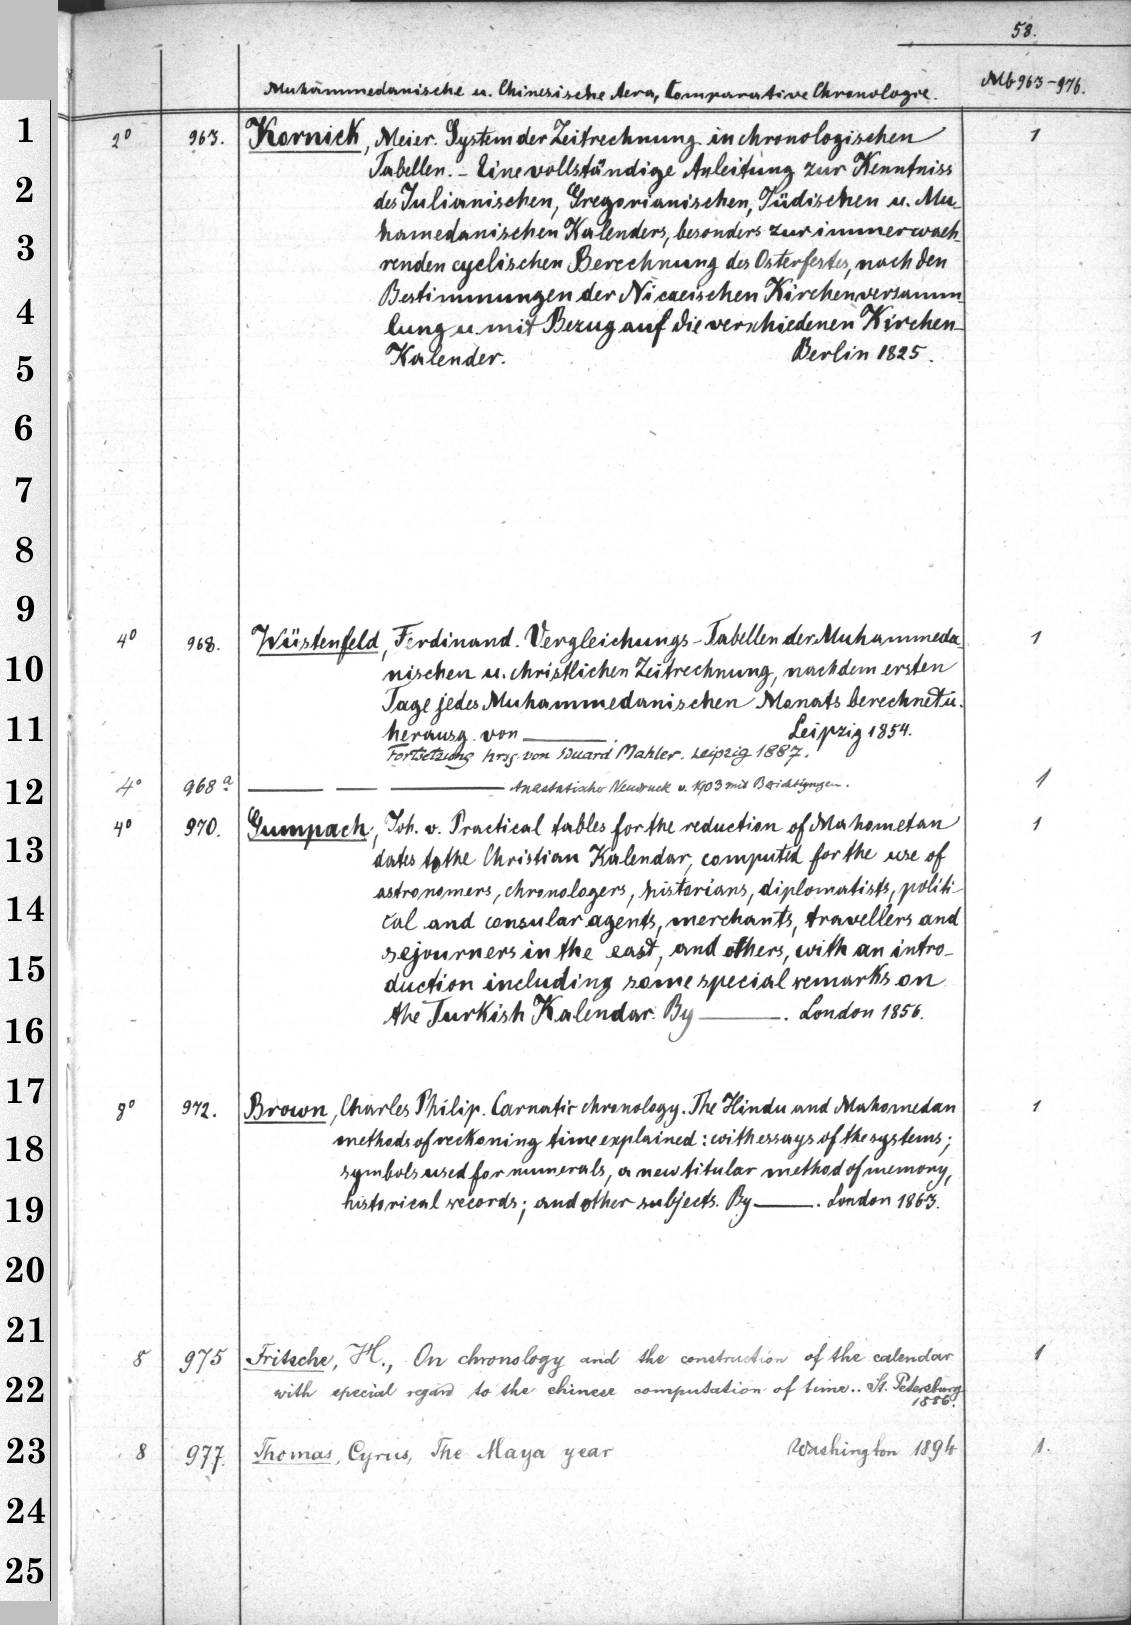 58.
Muhammedanische u. Chinesische Aera, Comparative Chronologie. Mb 963-976.
1
2
3
4
5
6
7
8
9
10
11
12
13
14
15
16
17
18
19
20
21
22
23
24
25
2° 963. Kornick, Meier. System der Zeitrechnung in chronologischen 1
Tabellen. - Eine vollständige Anleitung zur Kenntniss
des Julianischen, Gregorianischen, Jüdischen u. Mu-
hamedanischen Kalenders, besonders zur immerwaeh-
renden cyclischen Berechnung des Osterfestes, nach den
Bestimmungen der Nicaeischen Kirchenversamm-
lung u. mit Bezug auf die verschiedenen Kirchen-
Kalender. Berlin 1825.
4° 968. Wüstenfeld, Ferdinand. Vergleichungs-Tabellen der Muhammeda- 1
nischen u. christlichen Zeitrechnung, nach dem ersten
Tage jedes Muhammedanischen Monats berechnet u.
herausg. von ———. Leipzig 1854.
Fortsetzung hrsg. von Eduard Mahler. Leipzig 1887.
4° 968 a ——— ——— ——— Anastatischer Neudruck v. 1903 mit Berichtigungen. 1
4° 970. Gumpach, Joh. v. Practical tables for the reduction of Mahometan 1
dates to the Christian Kalendar, computed for the use of
astronomers, chronologers, historians, diplomatists, politi-
cal and consular agents, merchants, travellers and
sejourners in the east, and others, with an intro-
duction including some special remarks on
the Turkish Kalendar. By ———. London 1856.
8° 972. Brown, Charles Philip. Carnatic chronology. The Hindu and Mahomedan 1
methods of reckoning time explained: with essays of the systems;
symbols used for numerals, a new titular method of memory,
historical records; and other subjects. By ———. London 1863.
8 975 Fritsche, H., On chronology and the construction of the calendar 1
with special regard to the chinese computation of time.. St. Petersburg
1886.
8 977. Thomas, Cyrus, The Maya year Washington 1894 1.